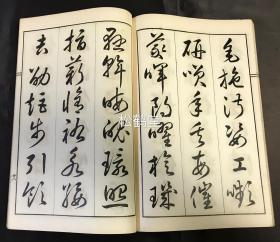 毛施淑姿工嚬
研咲年矢每催
羲暉朗曜旋璣
懸斡晦魄環照
指薪脩祜永綏
吉劭矩步引領